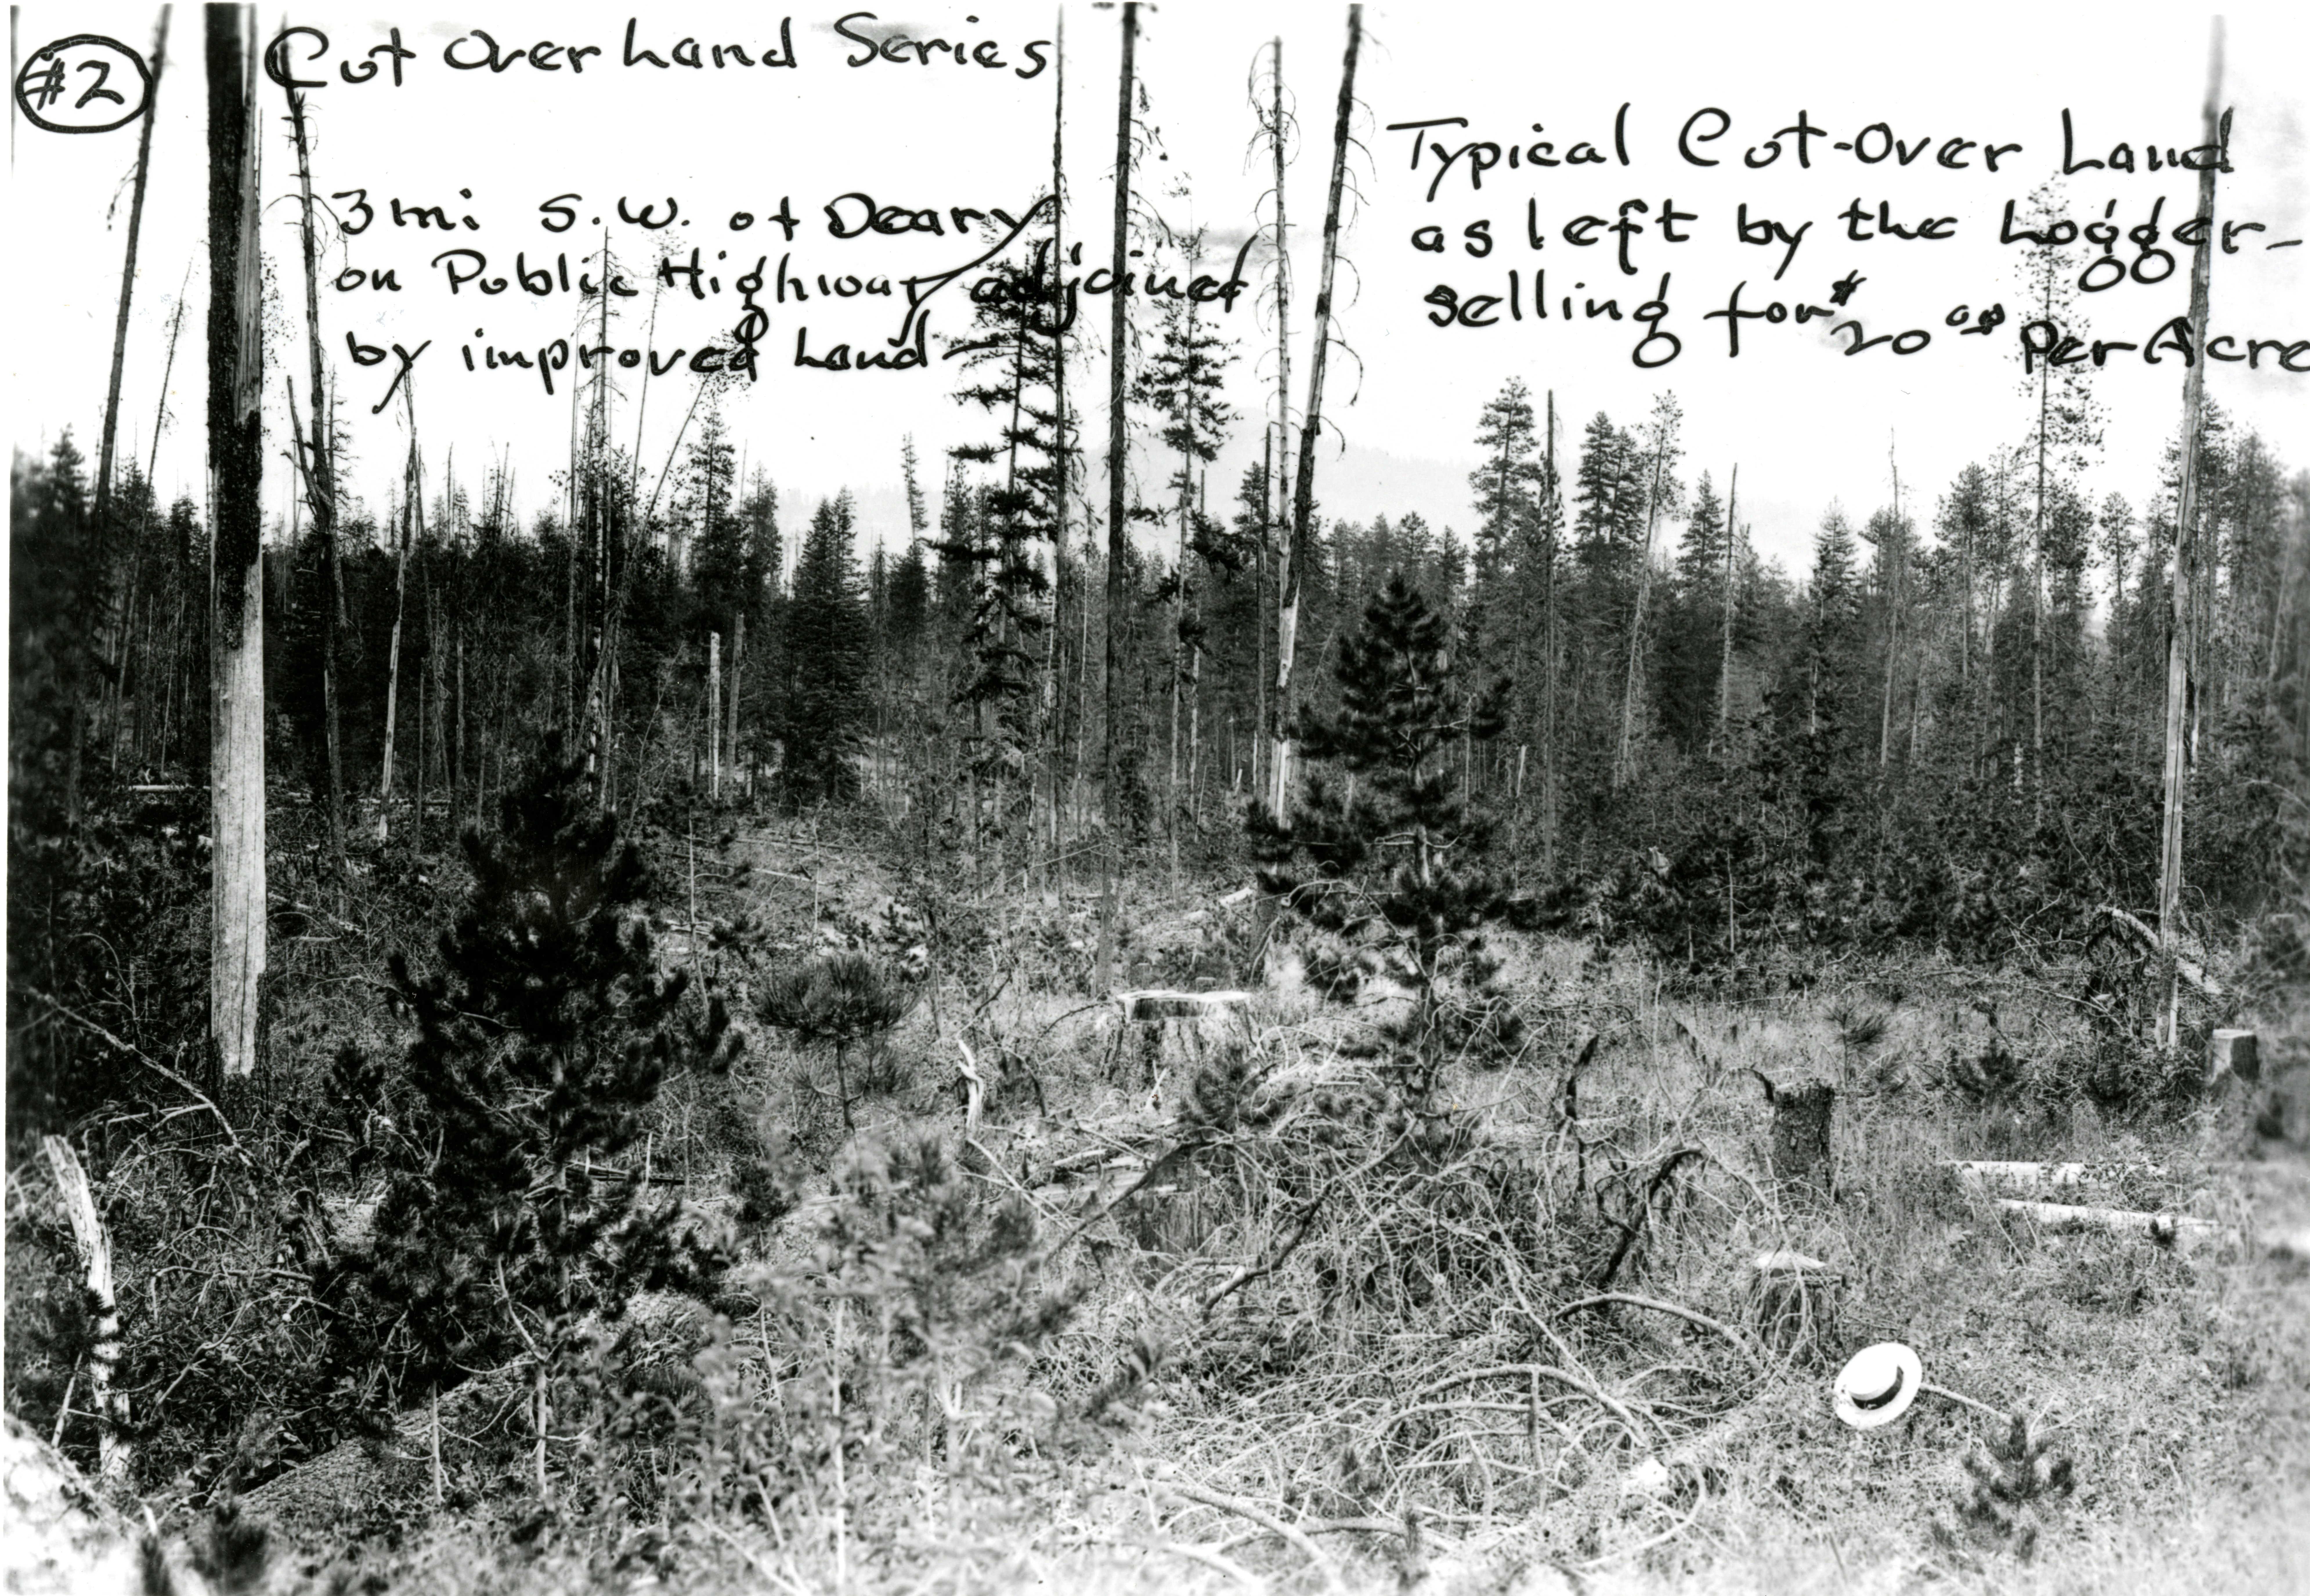 #2
Cut Over Land Series
3 mi S.W. of Deary
on Public Highway adjoined
by improved Land-
Typical Cut-Over Land
as left by the Logger-
selling for $20.00 Per Acre